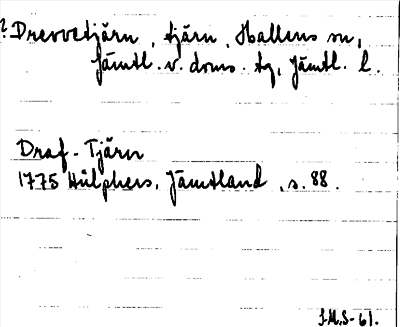 ? Drevvetjärn, tjärn, Hallens sn,
Jämtl. v. doms. tg, Jämtl. l.
Draf-Tjärn
1775 Hülphers, Jämtland, s. 88.
J.M.S-61.